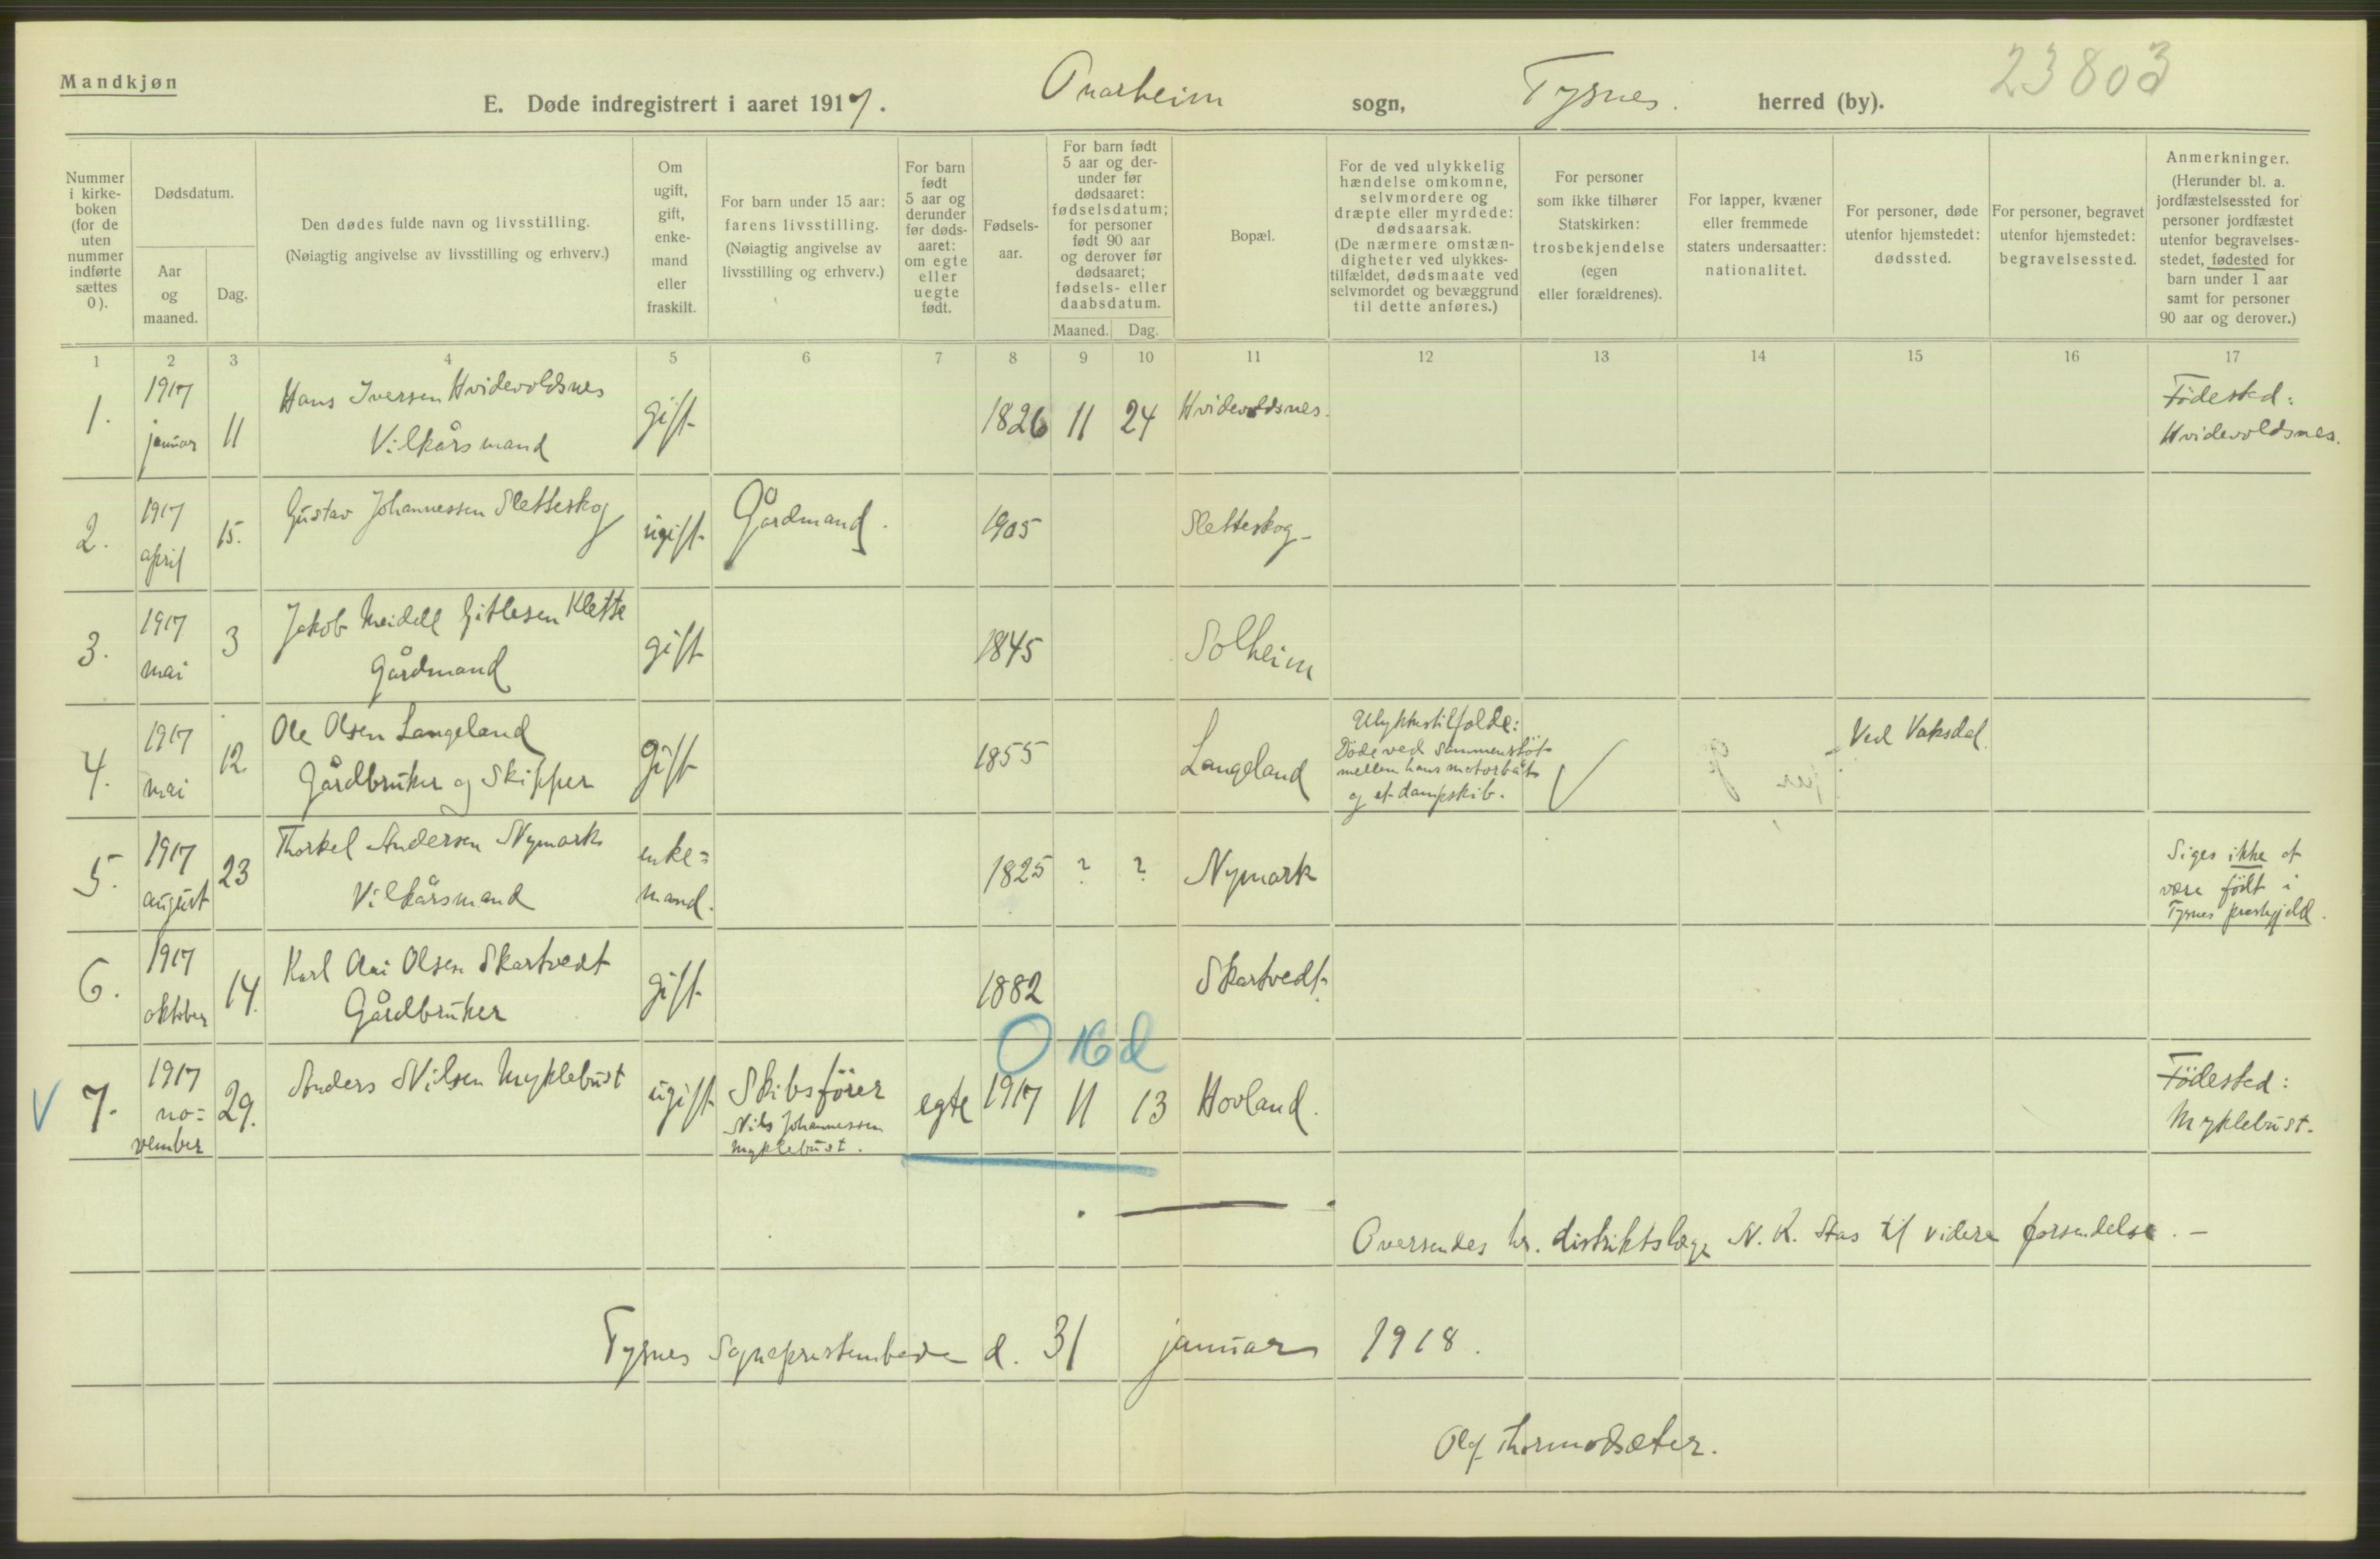 Mandkjøn
23803
E. Døde indregistrert i aaret 1917. Onarheim sogn, Tysnes. herred (by).
Nummer
i kirke-
boken
(for de
uten
nummer
indførte
sættes
0).
Dødsdatum.
Aar
og
maaned.
Dag.
Den dødes fulde navn og livsstilling.
(Nøiagtig angivelse av livsstilling og erhverv.)
Om
ugift,
gift,
enke-
mand
eller
fraskilt.
For barn under 15 aar:
farens livsstilling.
(Nøiagtig angivelse av
livsstilling og erhverv.)
For barn
født
5 aar og
derunder
før døds-
aaret:
om egte
eller
uegte
født.
Fødsels-
aar.
For barn født
5 aar og der-
under før
dødsaaret:
fødselsdatum;
for personer
født 90 aar
og derover før
dødsaaret;
fødsels- eller
daabsdatum.
Maaned. Dag.
Bopæl.
For de ved ulykkelig
hændelse omkomne,
selvmordere og
dræpte eller myrdede:
dødsaarsak.
(De nærmere omstæn-
digheter ved ulykkes-
tilfældet, dødsmaate ved
selvmordet og bevæggrund
til dette anføres.)
For personer
som ikke tilhører
Statskirken:
trosbekjendelse
(egen
eller forældrenes).
For lapper, kvæner
eller fremmede
staters undersaatter:
nationalitet.
For personer, døde
utenfor hjemstedet:
dødssted.
For personer, begravet
utenfor hjemstedet:
begravelsessted.
Anmerkninger.
(Herunder bl. a.
jordfæstelsessted for
personer jordfæstet
utenfor begravelses-
stedet, fødested for
barn under 1 aar
samt for personer
90 aar og derover.)
1 2 3 4 5 6 7 8 9 10 11 12 13 14 15 16 17
1.
1917
januar
11
Hans Iversen Hvidevoldsnes
Vilkårsmand
gift
1826 11 24
Hvidevoldsnes.
Födested:
Hvidevoldsnes.
2.
1917
april
15.
Gustav Johannessen Sletteskog
ugift
Gårdmand.
1905
Sletteskog
3.
1917
mai
3
Jakob Meidell Gitlesen Klette
Gårdmand
gift
1845
Solheim
4.
1917
mai
12.
Ole Olsen Langeland
Gårdbruker og Skipper
gift
1855
Langeland
Ulykkestilfælde:
Döde ved sammenstöt
mellem hans motorbåt
og et dampskib.
Ved Vaksdal.
5.
1917
august
23
Thorkel Andersen Nymark
Vilkårsmand
enke=
mand.
1825 ? ?
Nymark
Siges ikke at
være födt i
Tysnes prestegjeld.
6.
1917
oktober
14.
Karl Olsen Skartvedt
Gårdbruker
gift
1882
Skartvedt
0 16 d
V 7.
1917
no=
vember
29.
Anders Nilsen Myklebust
ugift
Skibsförer
Nils Johannessen
Myklebust.
egte
1917 11 13
Hovland.
Födested:
Myklebust.
Oversendes hr. distriktslæge N. K. Stas til videre forsendelse. -
Tysnes Sogneprestembede d. 31 januar 1918.
Olaf Thormodsæter.